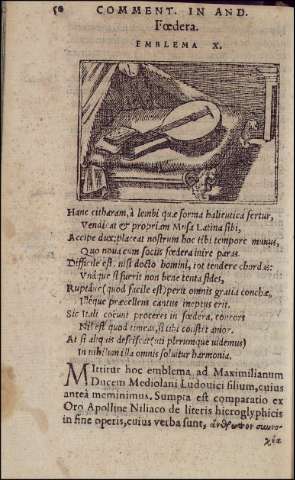 50 COMMENT. IN AND.
Fœdera.
EMBLEMA X.
Hanc citharam, à lembi quæ forma halieutica fertur,
Vendicat & propriam Musa Latina sibi,
Accipe dux: placeat nostrum hoc tibi tempore munus,
Quo noua cum sociis fœdera inire paras.
Difficile est, nisi docto homini, tot tendere chordas:
Vnaque si fuerit non bene tenta fides,
Ruptáve (quod facile est) perit omnis gratia conchæ,
Illéque præcellens cantus ineptus erit.
Sic Itali coëunt proceres in fœdera, concors
Nil est quod timeas, si tibi constet amor.
At si aliquis desciscat (uti plerumque videmus)
In nihilum illa omnis soluitur harmonia.
Mittitur hoc emblema ad Maximilianum
Ducem Mediolani Ludouici filium, cuius
anteà meminimus. Sumpta est comparatio ex
Oro Apolline Niliaco de literis hieroglyphicis
in fine operis, cuius verba sunt,